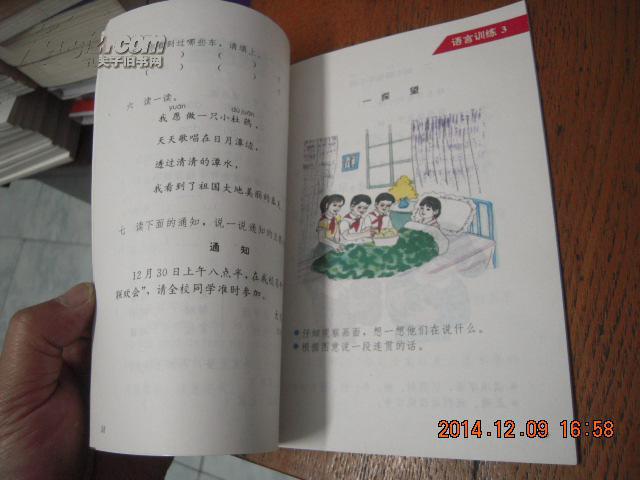 到过哪些车，请填上。
(　　) (　　)
(　　) (　　)
六 读一读。
yuàn dù juān
我愿做一只小杜鹃，
天天歌唱在日月潭边，
透过清清的潭水，
我看到了祖国大地美丽的
七 读下面的通知，说一说通知的
通 知
12月30日上午八点半，在我校
联欢会”，请全校同学准时参加。
语言训练 3
一 探 望
●仔细观察画面，想一想他们在说什么。
●根据图意说一段连贯的话。
孔夫子旧书网
2014.12.09 16:58